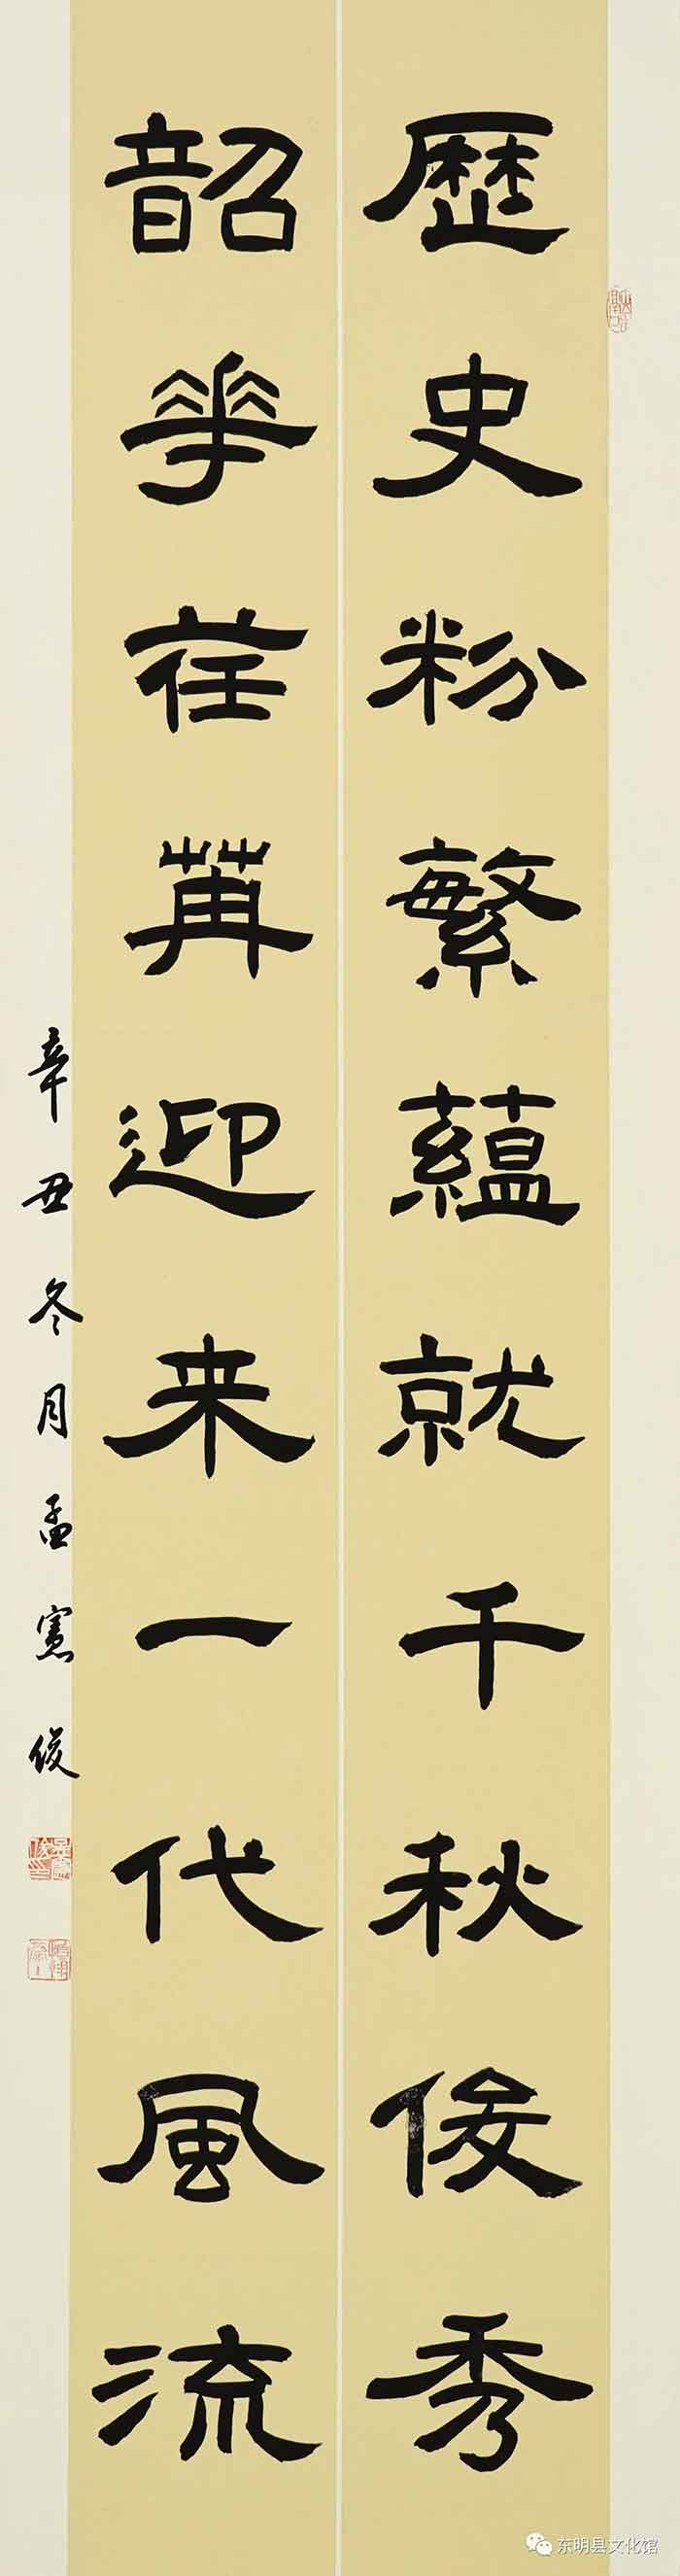 歷史粉繁蘊就千秋俊秀
韶華荏苒迎来一代風流
辛丑冬月孟憲俊
东明县文化馆